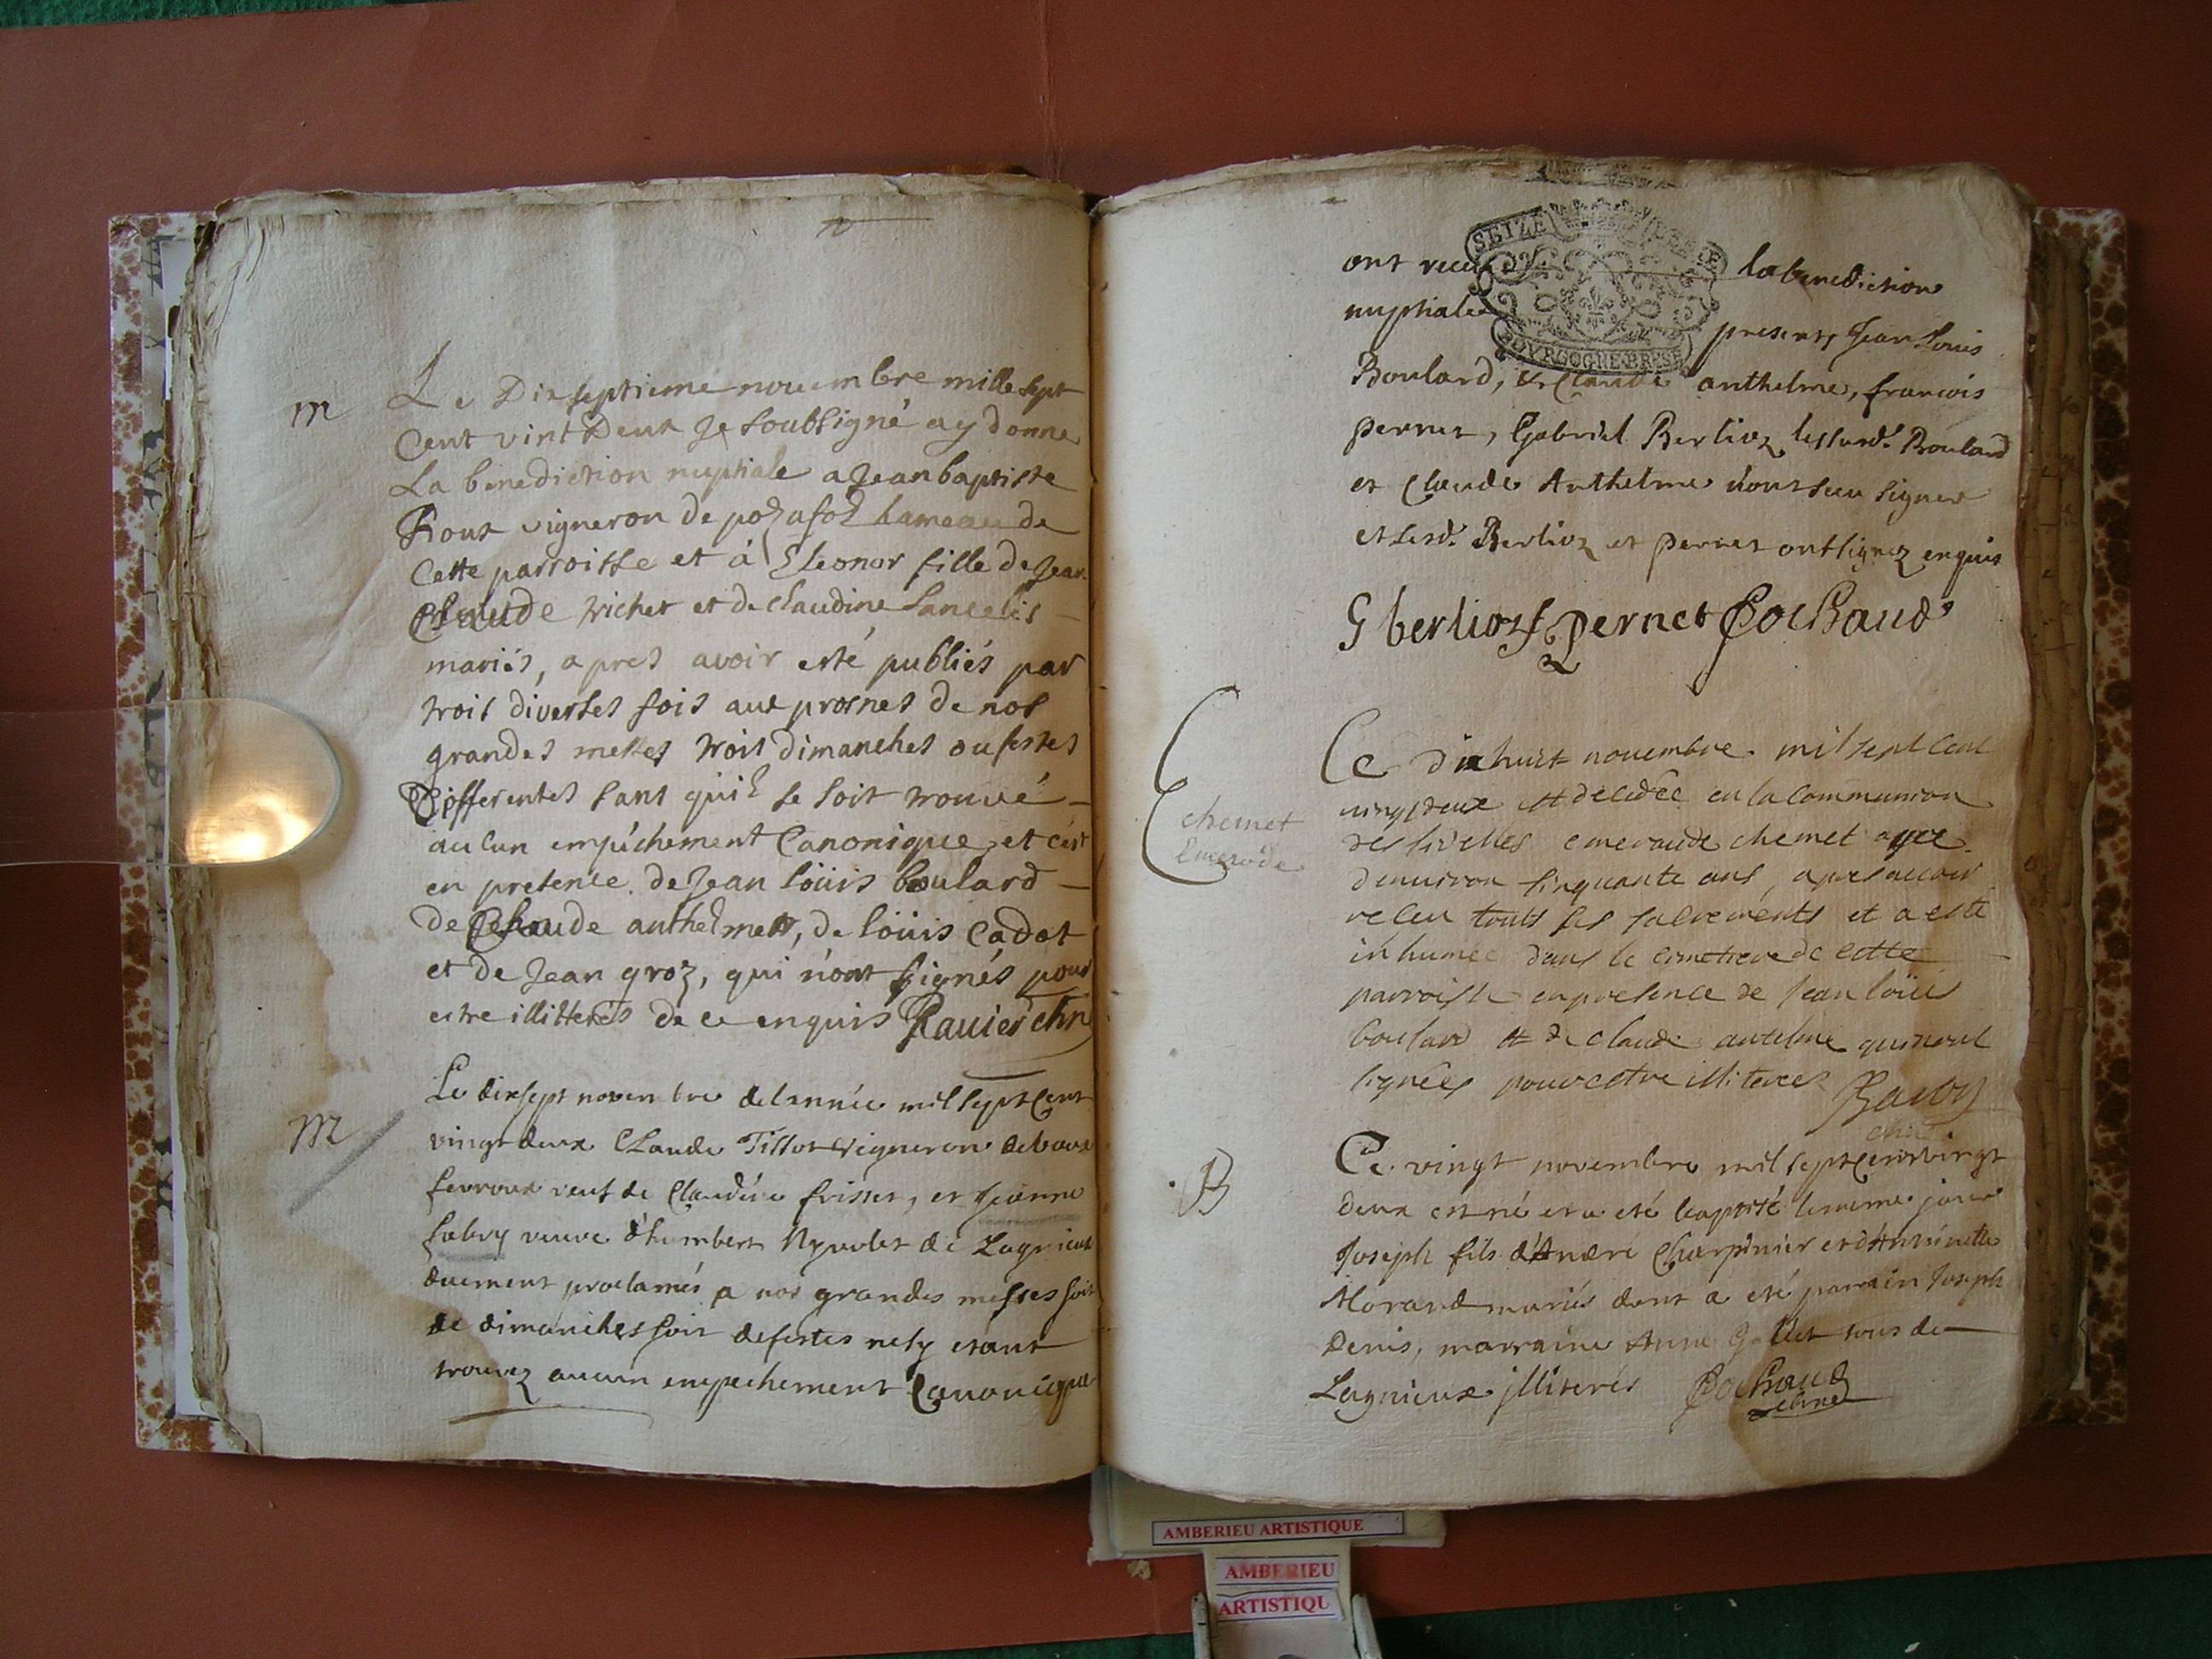 m
Le Dixseptieme nouembre mille sept
Cent vint Deux Je soubsigné ay donne
La benediction nuptiale a Jean baptiste
Roux vigneron de pozafol hameau de
Cette parroisse et à Eleonor fille de Jean
Claude richet et de claudine Lancelis
mariés, apres avoir esté publiés par
trois diverses fois aux prosnes de nos
grandes messes trois dimanches ou festes
Differentes sans quil se soit trouvé
aucun empéchement Canonique, et c'est
en presence de Jean loüis boulard
de Claude anthelme, de loüis Cadot
et de Jean groz, qui n'ont signés pour
estre illitterés de ce enquis Rauier
m
Le dixsept novembre delannée mil sept Cent
vingt deux Claude Tissot vigneron de vaux
fevroux veuf de Claudine frisset, et Jeanne
fabry veuve d'humbert de Lagnieux
duement proclamés a nos grandes messes soit
de dimanches soit de festes ne sy etant
trouvez aucun empechement Canonique
SEIZE
BOURGOGNE BRESSE
ont receu la benediction
nuptiale presents Jean Louis
Boulard, et Claude anthelme, francois
pernet, Gabriel Berlioz lesusd. Boulard
et Claude Anthelme n'ont sceu signer
et lesd. Berlioz et pernet ont signez enquis
G berlioz f pernet Cochaud
Ce dixhuit novembre mil sept cent
vingtdeux est decedée en la Communion
des fidelles emeraude chemet agee
denuiron sinquante ans, apres auoir
receu touts ses sacrements et a esté
inhumée dans le cimetiere de cette
parroisse en presence de Jean loüis
boulard et de claude antelme qui n'ont
signées pour estre illiterees
chemet
Emerode
B
Ce vingt novembre mil sept Cent vingt
deux est né et a eté baptisé le meme jour
Joseph fils d'André Charpinier et d'Antoinette
Morand mariés dont a eté parrain Joseph
Denis, marraine Anne tous de
Lagnieux illiterés Cochaud
AMBERIEU ARTISTIQUE
AMBERIEU
ARTISTIQU